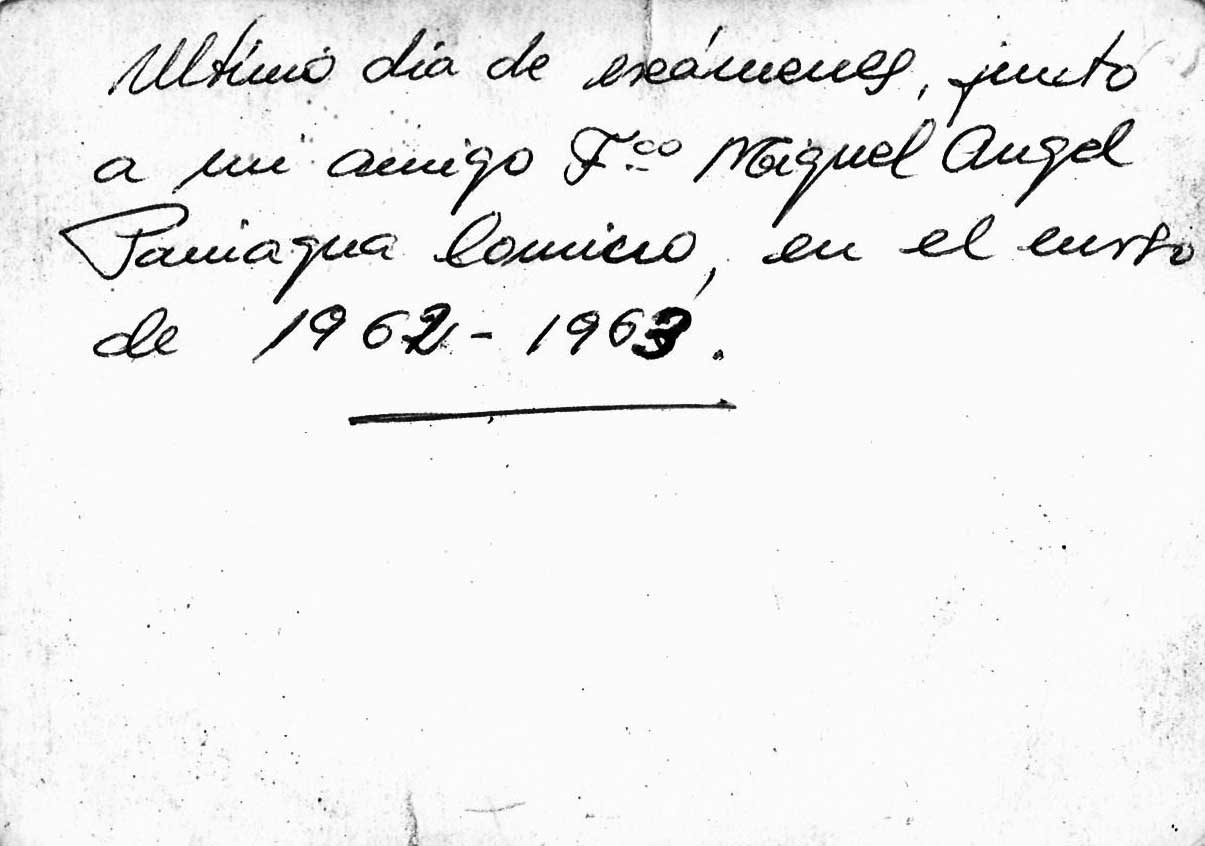 Ultimo día de exámenes, junto
a mi amigo F.co Miguel Angel
Paniagua Comicro, en el curso
de 1962-1963.